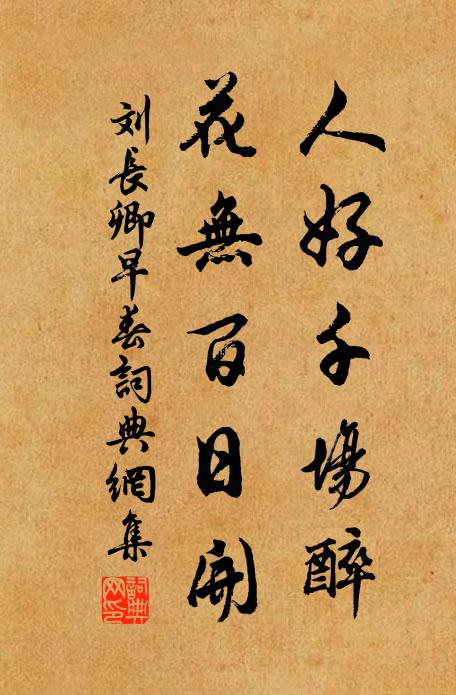 人好千場醉
花無百日開
刘長卿早春詞典網集
詞典
网印